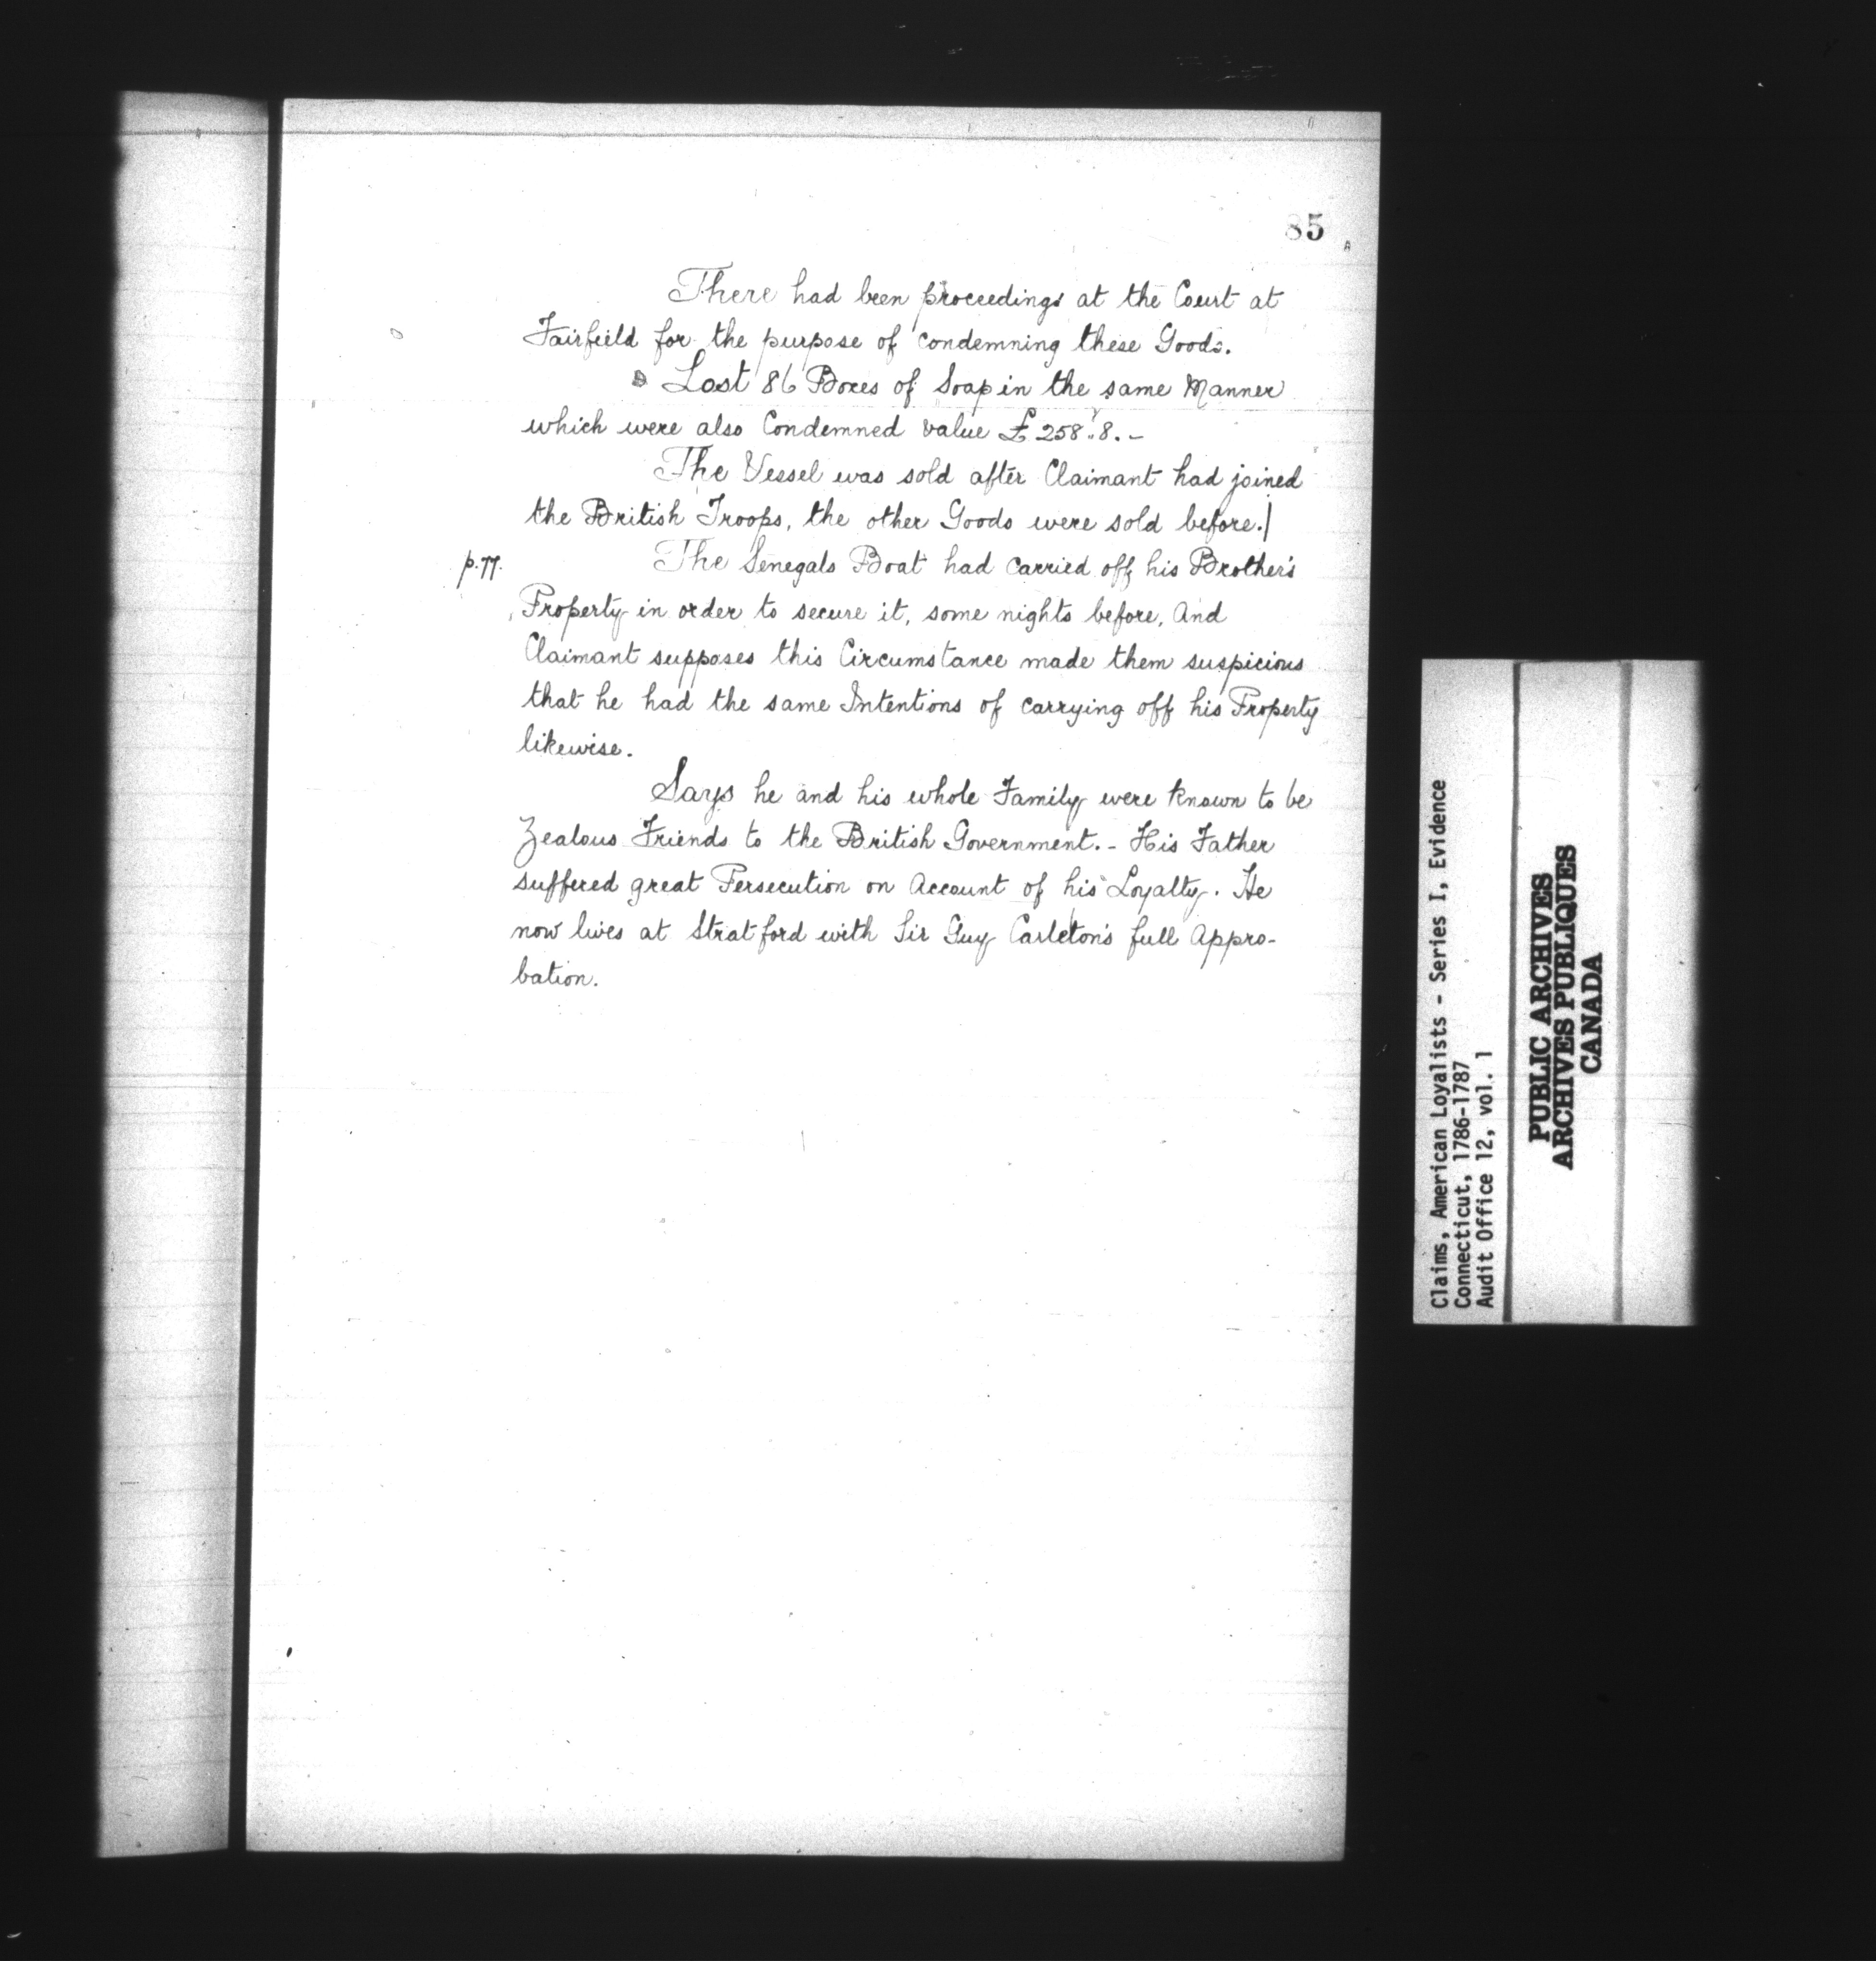 85
There had been proceedings at the Court at
Fairfield for the purpose of condemning these Goods.
Lost 86 Boxes of Soap in the same Manner
which were also Condemned value £258.8.-
The Vessel was sold after Claimant had joined
the British Troops, the other Goods were sold before.|
p.77.
The Senegals Boat had carried off his Brother's
Property in order to secure it, some nights before, And
Claimant supposes this Circumstance made them suspicious
that he had the same Intentions of carrying off his Property
likewise.
Says he and his whole Family were known to be
Zealous Friends to the British Government.- His Father
suffered great Persecution on Account of his Loyalty. He
now lives at Stratford with Sir Guy Carleton's full Appro-
bation.
Claims, American Loyalists - Series I, Evidence
Connecticut, 1786-1787
Audit Office 12, vol. 1
PUBLIC ARCHIVES
ARCHIVES PUBLIQUES
CANADA